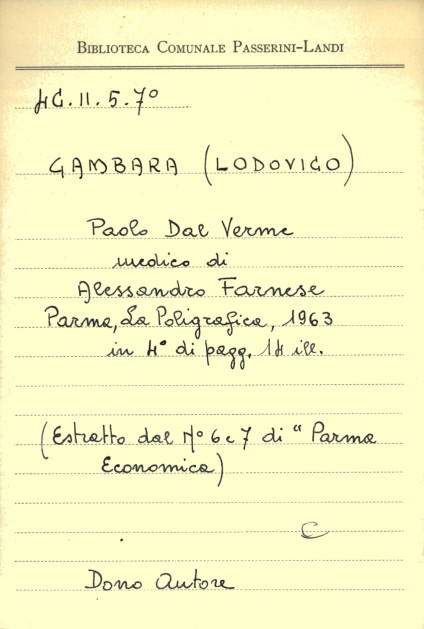 BIBLIOTECA COMUNALE PASSERINI-LANDI
4C.II.5.7°
GAMBARA (LODOVICO)
Paolo Dal Verme
medico di
Alessandro Farnese
Parma, La Poligrafica, 1963
in 4° di pagg. 14 ill.
(Estratto dal N° 6 e 7 di "Parma
Economica)
C
Dono Autore